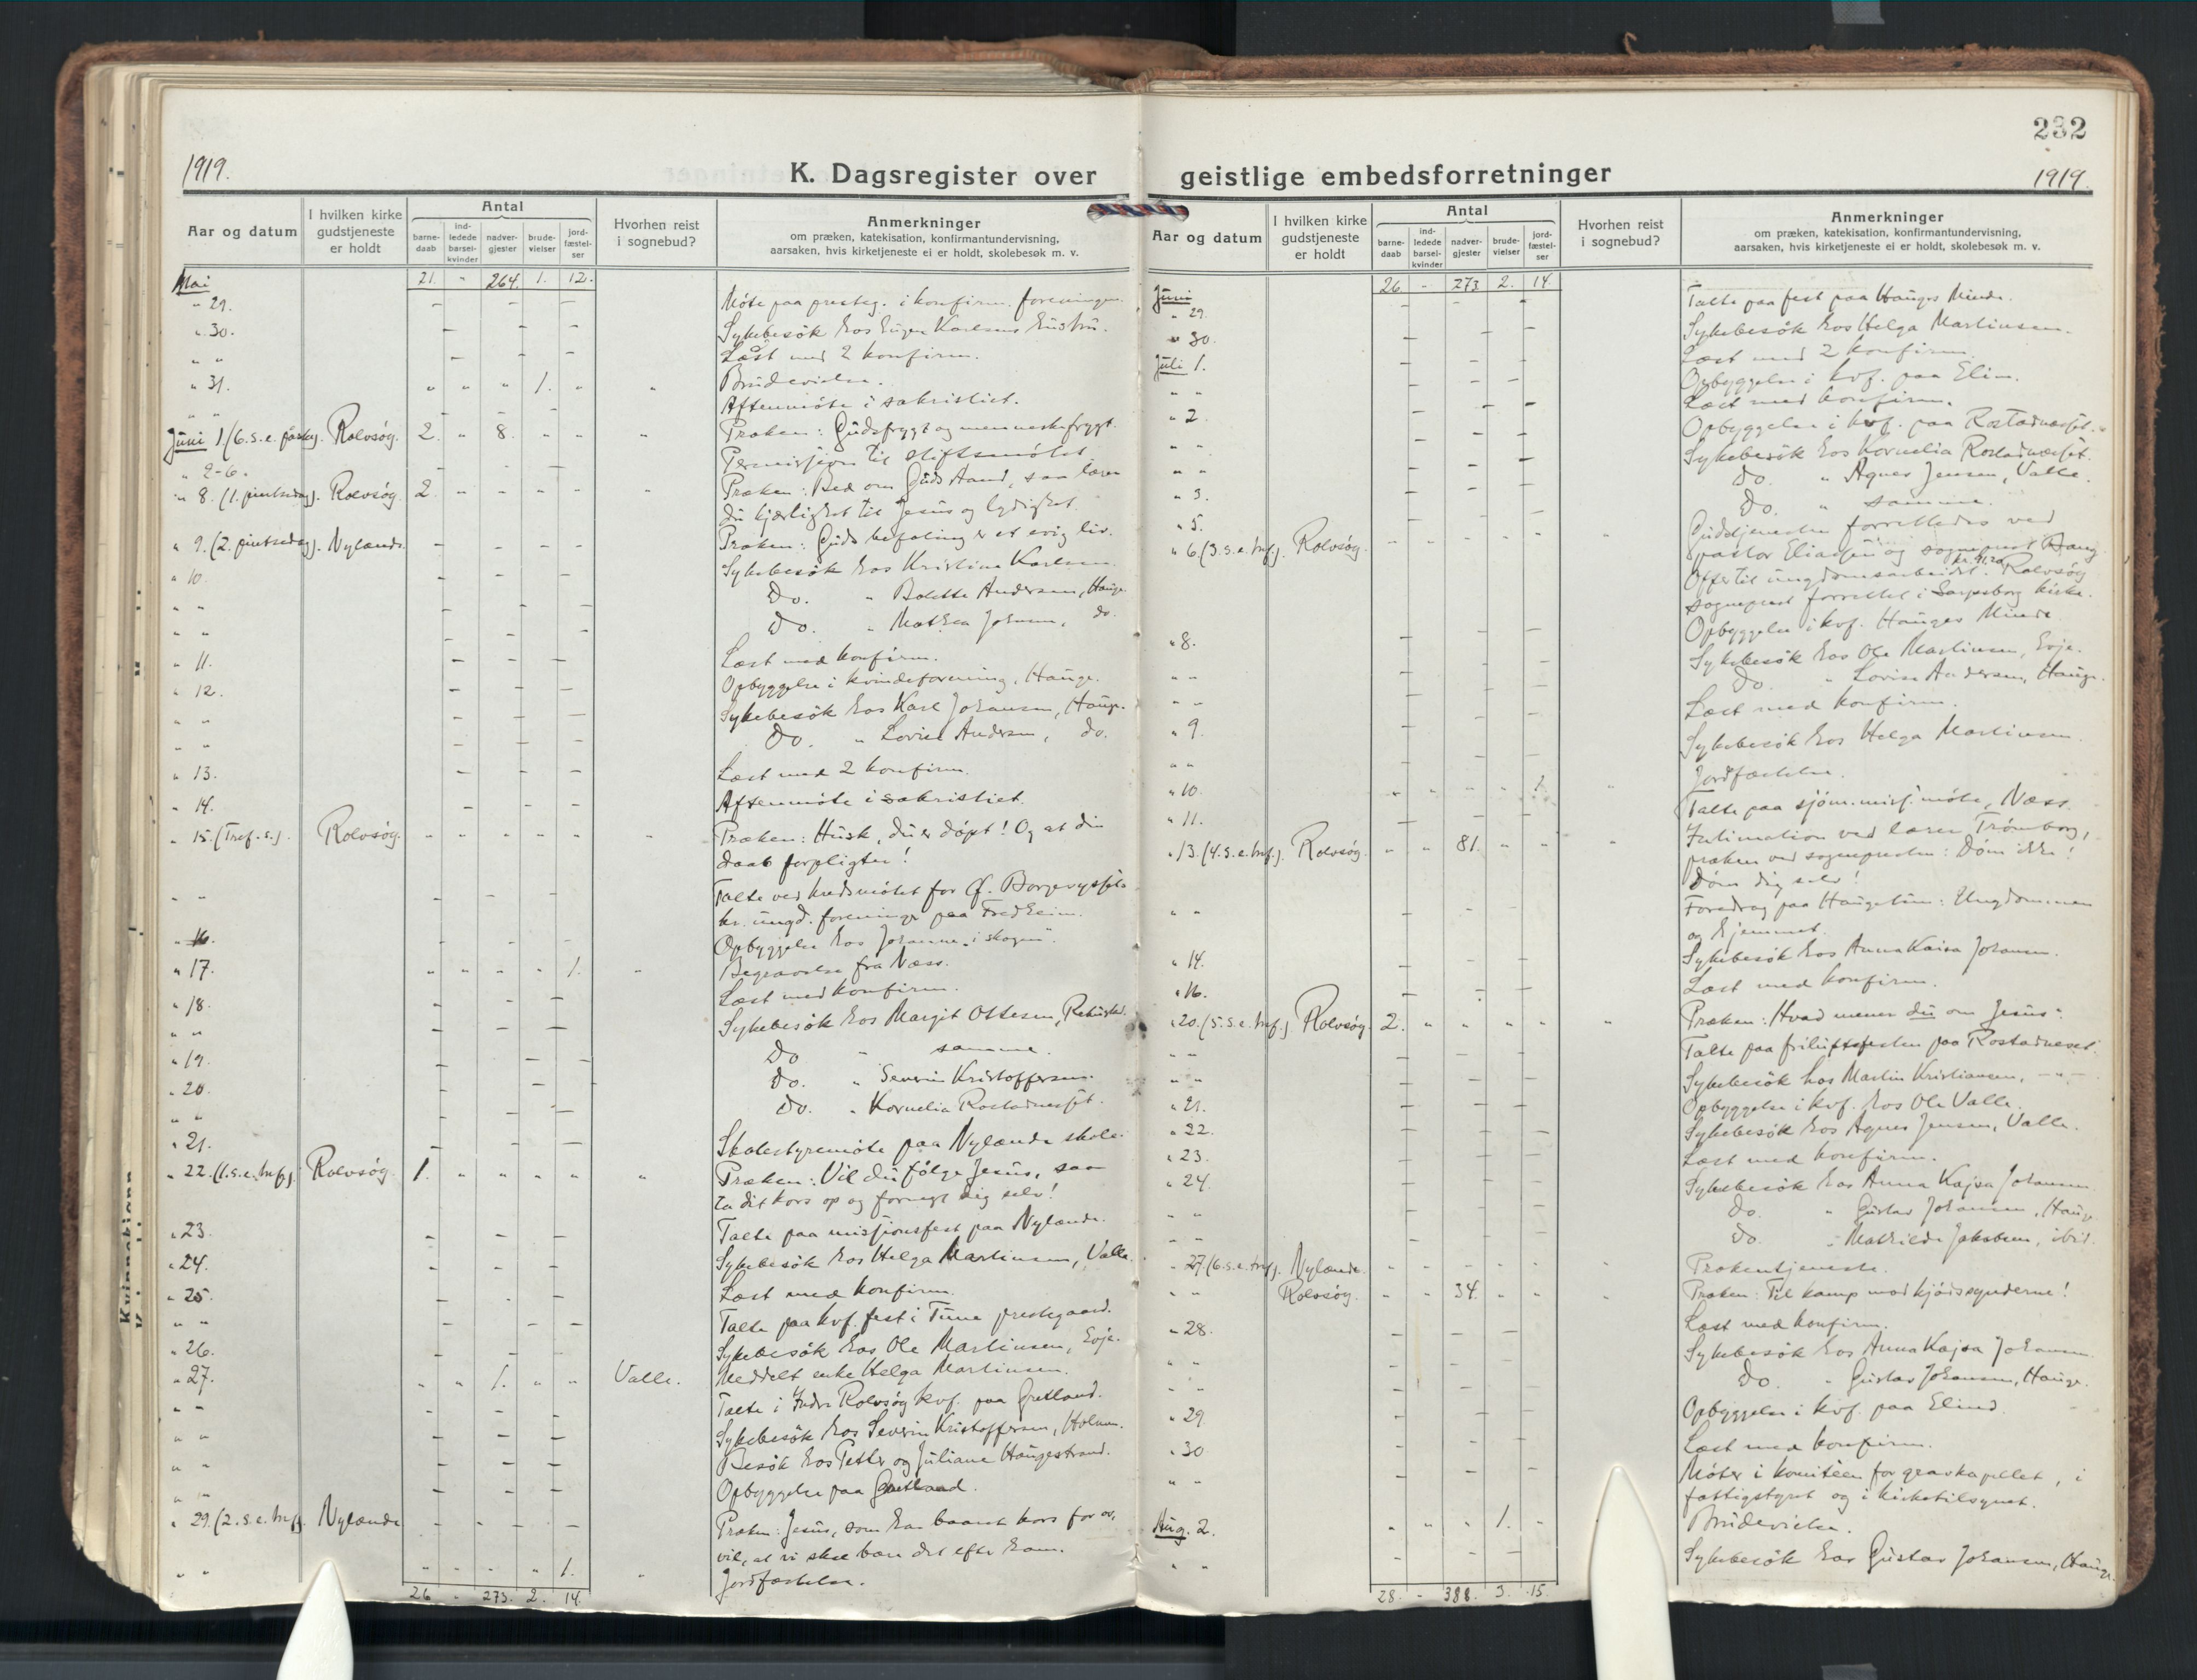 232
1919.
K. Dagsregister over geistlige embedsforretninger
1919.
Aar og datum
I hvilken kirke gudstjeneste er holdt
Antal
barne-daab
ind-ledede barsel-kvinder
nadver-gjester
brude-vielser
jord-fæstel-ser
Hvorhen reist i sognebud?
Anmerkninger
om præken, katekisation, konfirmantundervisning,
aarsaken, hvis kirketjeneste ei er holdt, skolebesøk m. v.
Mai 21. - 264. 1. 12.
" 29. Møte paa presteg. i konfirm. foreningen.
" 30. Sykebesök hos Eugen Karlsens hustru.
" " Læst med 2 konfirm.
" 31. " " " 1. " " Brudevielse.
" " Aftenmöte i sakristiet.
Juni 1. (6. s. e. paaske). Rolvsøg. 2. " 8. " " " Præken: Gudsfrygt og menneskefrygt.
" 2-6. Permisjon til stiftsmötet.
" 8. (1. pintsedag). Rolvsøg. 2. Præken: Bed om Guds Aand, saa lærer
du kjærlighet til Jesus og lydighet.
" 9. (2. pintsedag). Nylænde. Præken: Guds befaling er et evig liv.
" 10. Sykebesök hos Kristine Karlsen.
" " Do. " Bolette Andersen, Hauge.
" " Do. " Mathea Johnsen, do.
" 11. Læst med konfirm.
" 12. Opbyggelse i kvindeforening, Hauge.
" " Sykebesök hos Karl Johansen, Hauge.
" " Do. " Lovise Andersen, do.
" 13. Læst med 2 konfirm.
" 14. Aftenmöte i sakristiet.
" 15. (Tref. s.). Rolvsøg. Præken: Husk, du er döpt! Og at din
daab forpligter!
" " Talte ved kredsmötet for Øf. Borgesyssels
kr. ungd. foreninger paa Fredheim.
" 16. Opbyggelse hos Johanne "i skogen".
" 17. " " " " 1. " Begravelse fra Næss.
" 18. Læst med konfirm.
" " Sykebesök hos Margit Ottesen,
" 19. Do " samme.
" 20. Do. " Severin Kristoffersen.
" " Do. " Kornelia Rostadneset.
" 21. Skolestyremöte paa Nylænde skole.
" 22. (1. s. e. tref.). Rolvsøg. 1. " " " " " Præken: Vil du fölge Jesus, saa
ta dit kors op og fornegt dig selv!
" 23. Talte paa missjonsfest paa Nylænde.
" 24. Sykebesök hos Helga Martinsen, Valle.
" 25. Læst med konfirm.
" " Talte paa kvf. fest i Tune prestegaard.
" 26. Sykebesök hos Ole Martinsen, Evje.
" 27. " " 1. " " Valle. Meddelt enke Helga Martinsen.
" " Talte i Indre Rolvsøg kvf. paa Gretland.
" " Sykebesök hos Severin Kristoffersen, Holmen.
" " Besök hos Petter og Juliane Haugestrand.
" " Opbyggelse paa Gretland.
" 29. (2. s. e. tref.). Nylænde Præken: Jesus, som har baaret kors for os,
vil, at vi skal bære det efter ham.
" " " " " " 1. " Jordfæstelse.
26 - 273. 2. 14.
Aar og datum
I hvilken kirke gudstjeneste er holdt
Antal
barne-daab
ind-ledede barsel-kvinder
nadver-gjester
brude-vielser
jord-fæstel-ser
Hvorhen reist i sognebud?
Anmerkninger
om præken, katekisation, konfirmantundervisning,
aarsaken, hvis kirketjeneste ei er holdt, skolebesøk m. v.
26. - 273 2. 14.
Juni
" 29. Talte paa fest paa Hauges Minde.
" 30. Sykebesök hos Helga Martinsen.
Læst med 2 konfirm.
Juli 1. Opbyggelse i kvf. paa Elim.
" " Læst med konfirm.
" 2. Opbyggelse i kvf. paa Rostadneset.
" " Sykebesök hos Kornelia Rostadneset.
" " Do. " Agnes Jensen, Valle.
" 3. Do. " samme.
" 5.
" 6. (3. s. e. tref.). Rolvsøg. Gudstjenesten forrettedes ved
pastor Eliassen og sogneprest Hang.
Offer til ungdomsarbeidet. Rolvsøg
sogneprest forrettet i Sarpsborg kirke.
" 8. Opbyggelse i kvf. Hauges Minde.
" " Sykebesök hos Ole Martinsen, Evje.
" " Do " Lovise Andersen, Hauge.
" 9. Læst med konfirm.
" " Sykebesök hos Helga Martinsen.
" 10. " " " " 1. " Jordfæstelse.
" 11. Talte paa sjöm. misj. möte, Næss.
" 13. (4. s. e. tref.). Rolvsøg. " " 81. " " " Intimation ved lærer Trömborg,
præken ved sognepresten: Döm ikke!
Döm dig selv!
" " Foredrag paa Haugeheim: Ungdommen
og hjemmet.
" 14. Sykebesök hos Anna Kaisa Johansen.
" 16. Læst med konfirm.
" 20. (5. s. e. tref.) Rolvsøg. 2. " " " " " Præken: Hvad mener du om Jesus?
" " Talte paa friluftsfesten paa Rostadneset.
" " Sykebesök hos Martin Kristiansen, - " -
" 21. Opbyggelse i kvf. hos Ole Valle.
" 22. Sykebesök hos Agnes Jensen, Valle.
" 23. Læst med konfirm.
" 24. Sykebesök hos Anna Kajsa Johansen
" " Do. " Gustav Johansen, Hauge.
" " Do. " Mathilde Jakobsen, ibid.
" 27. (6. s. e. tref.). Nylænde. Prækentjeneste.
" " Rolvsøg. " " 34. " " " Præken: Til kamp mod kjödssynderne!
" 28. Læst med konfirm.
" " Sykebesök hos Anna Kajsa Johansen
" " Do " Gustav Johansen, Hauge.
" 29. Opbyggelse i kvf. paa Elind.
" 30 Læst med konfirm.
" " Möter i komitéen for gravkapellet, i
fattigstyret og i kirketilsynet.
Aug. 2. " " " 1. " Brudevielse.
" " Sykebesök hos Gustav Johansen, Hauge.
28. - 388. 3. 15.